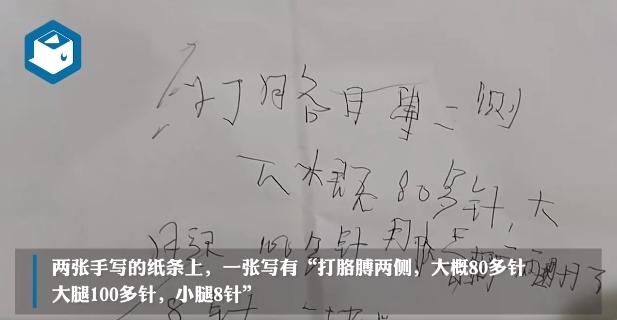 打胳膊二侧
大概80多针,大
腿100多针
8针
两张手写的纸条上，一张写有“打胳膊两侧，大概80多针
大腿100多针，小腿8针”